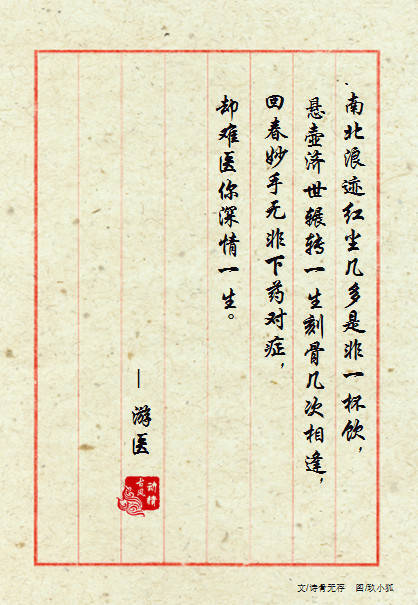 南北浪迹红尘几多是非一杯饮，
悬壶济世辗转一生刻骨几次相逢，
回春妙手无非下药对症，
却难医你深情一生。
—游医
动情
古风
文/诗骨无存 图/玖小狐